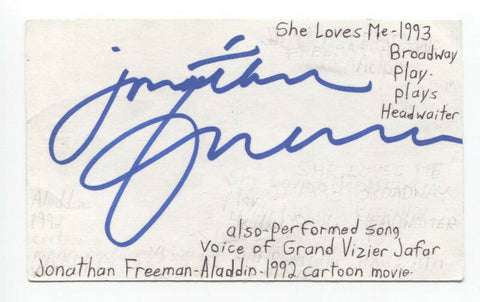 She Loves Me-1993
Broadway
Play-
plays
Headwaiter
Jonathan
Freeman
also-performed song
voice of Grand Vizier Jafar
Jonathan Freeman-Aladdin-1992 cartoon movie-